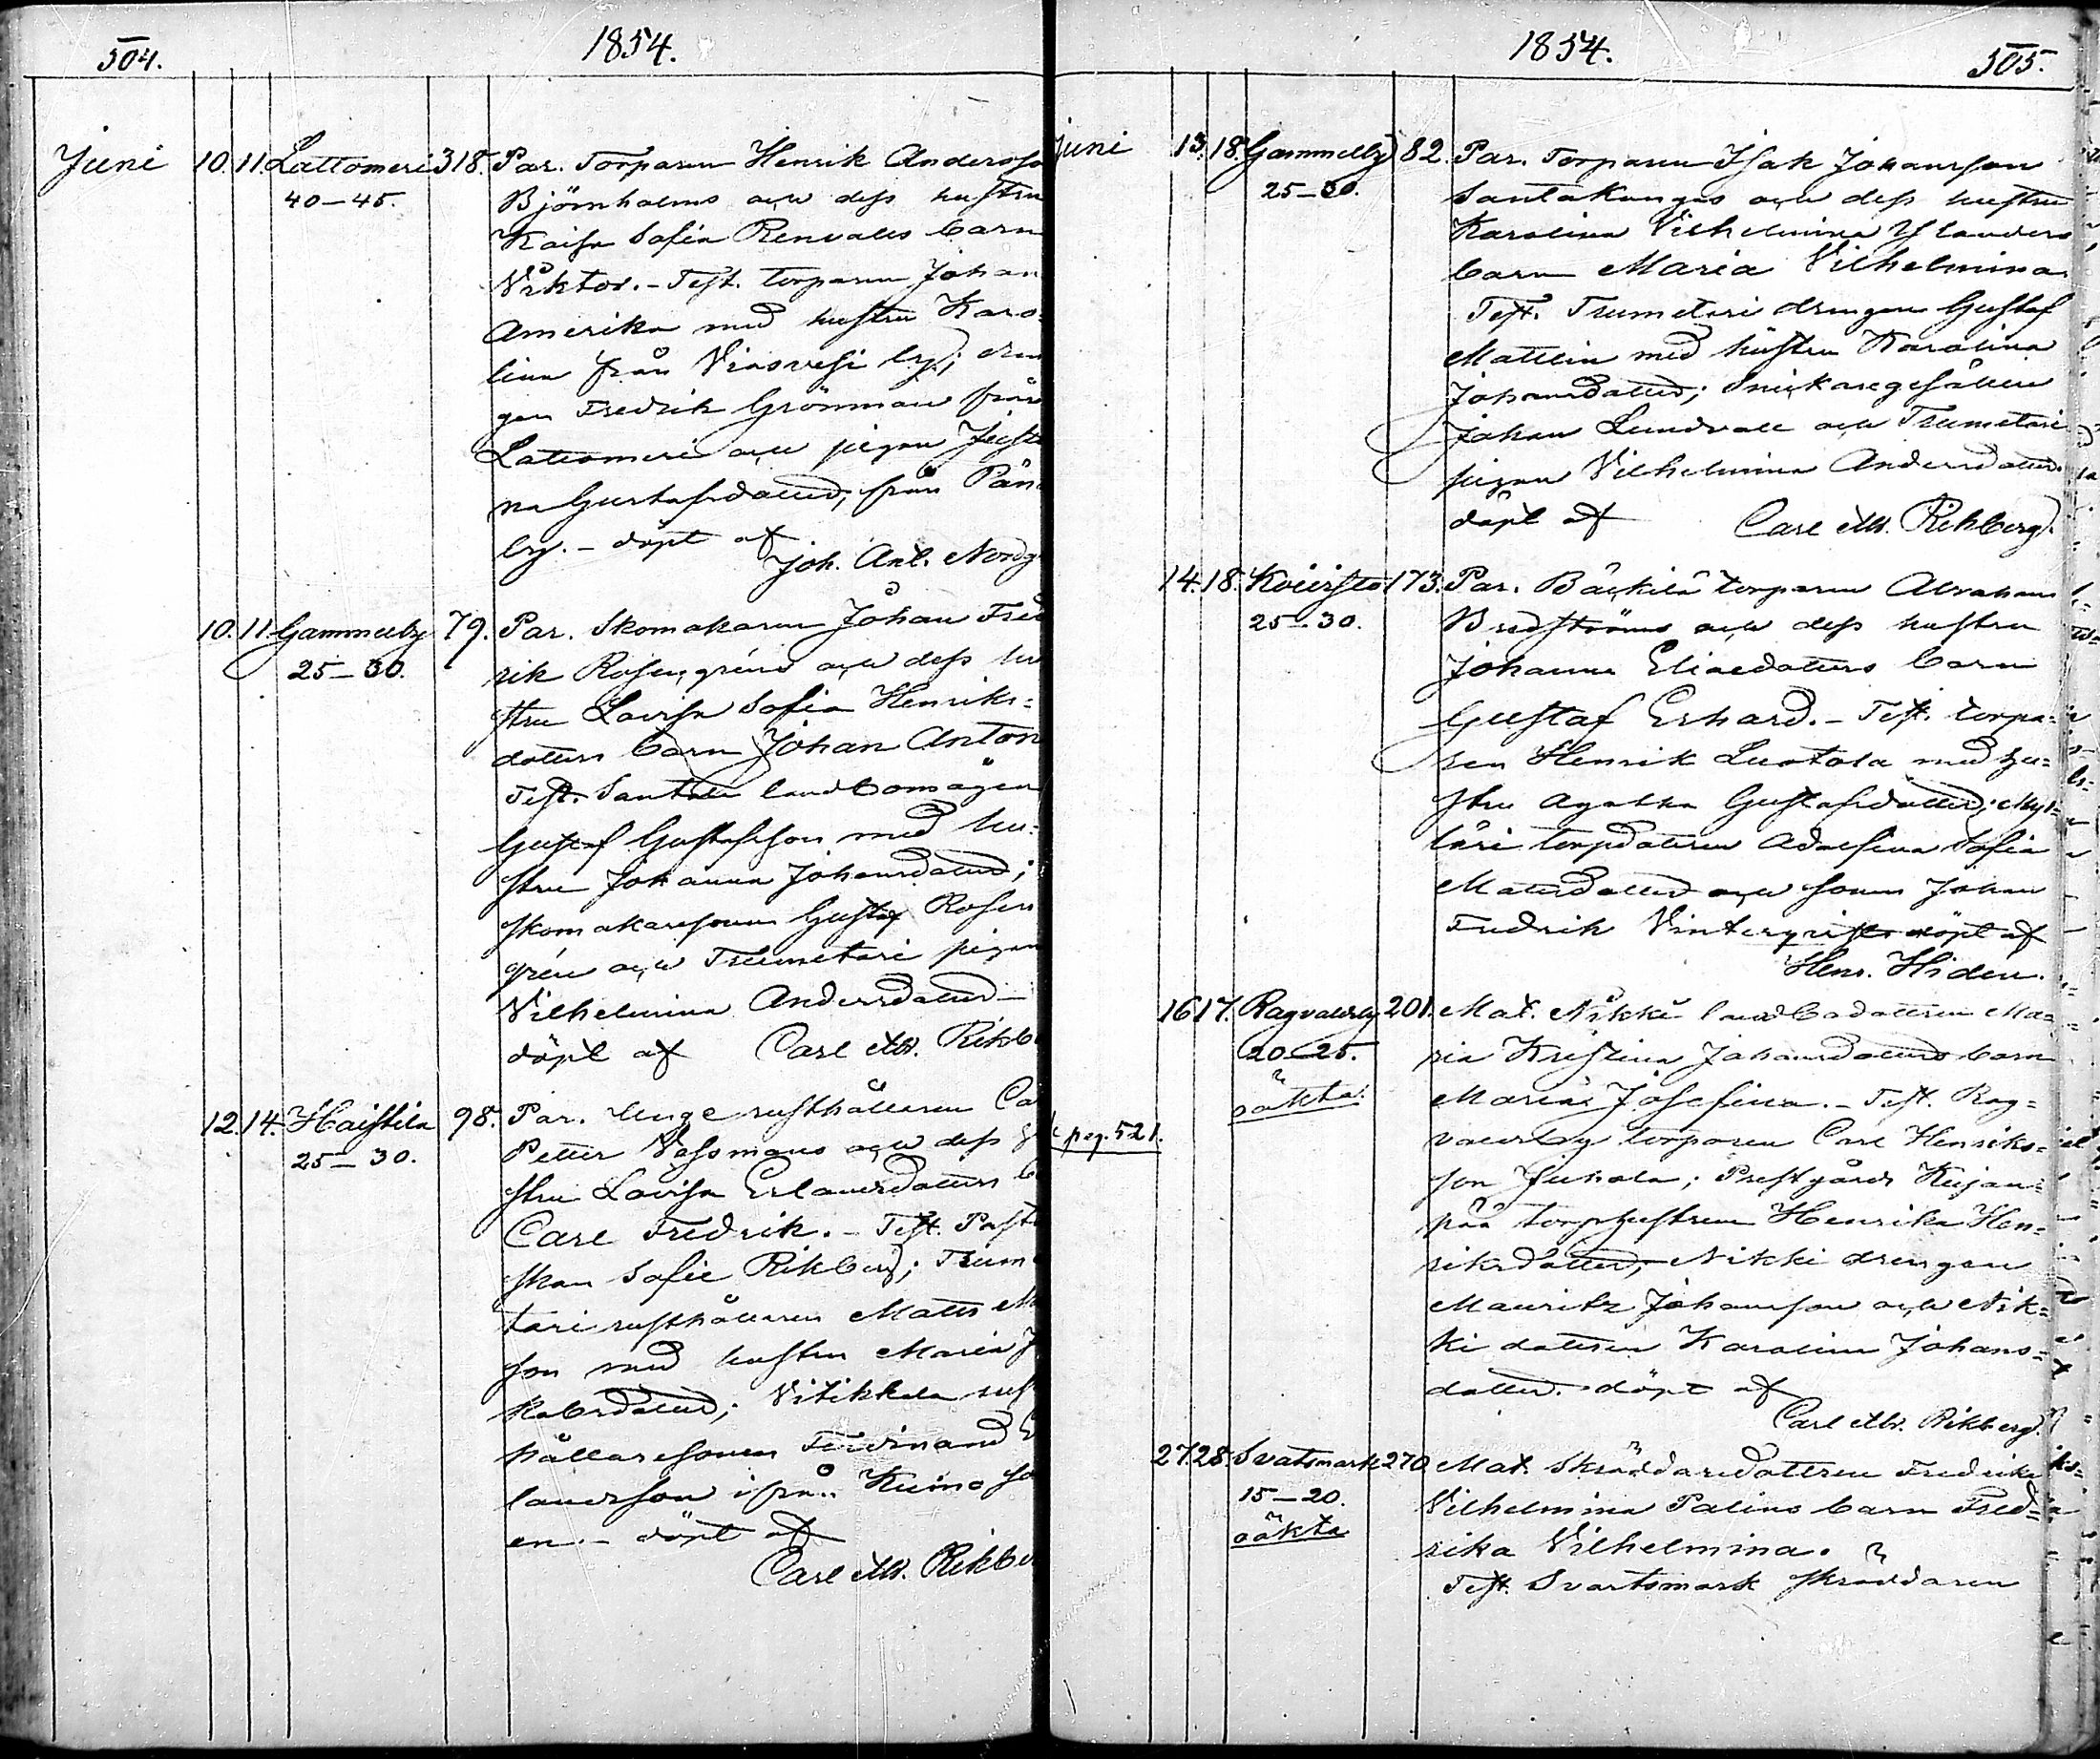 504.
1854.
Juni
10. 11. Lattomeri 318. Par. Torparen Henrik Andersso
40–45.
Björnholms och dess hustru
Kaisa Sofia Renvalls barn
Viktor. – Test. torparen Johan
Amerika med hustru Karo-
lina från Viasvesi by; dren
gen Fredrik Grönman från
Lattomeri och pigan Justi
na Gustafsdotter, från Pän
by. – döpt af
Joh. Ant. Nordg
10. 11. Gammelby 79. Par. Skomakaren Johan Fred
25–30.
rik Rosengréns och dess hu
stru Lovisa Sofia Henriks-
dotters barn Johan Anton
Test. landbomågen
Gustaf Gustafsson med hu-
stru Johanna Johansdotter;
skomakaresonen Gustaf Rosen
grén och Trumetari pigan
Vilhelmina Andersdotter –
döpt af Carl M. Rikb
12. 14. Haistila 98. Par. Unge rusthållaren Ca
25–30.
Petter Vassmans och dess hu
stru Lovisa Erlandsdotters b
Carl Fredrik. – Test. Past
skan Sofie Rikberg; Trum
tari rusthållaren Matts M
son med hustru Maria J
kobsdotter; Vitikkala rust
hållaresonen Ferdinand E
landsson ifrån Kumo so
en. – döpt af
Carl M. Rikbe
1854.
505.
Juni
13. 18. Gammelby 82. Par. Torparen Isak Johansson
25–30.
Santakangas och dess hustru
Karolina Vilhelmina Ylanders
barn Maria Vilhelmina
Test. Trumetari drengen Gustaf
Mattlin med hustru Karolina
Johansdotter; Snickaregesällen
Johan Lundvall och Trumetari
pigan Vilhelmina Andersdotter.
döpt af Carl M. Rikberg.
14. 18. Koivisto 173. Par. Bäckilä torparen Abraham
25–30.
Bredströms och dess hustru
Johanna Eliaedotters barn
Gustaf Erhard. – Test. torpa-
ren Henrik Luotola med hu-
stru Agatha Gustafsdotter; Myl-
läri torpdottren Adolfina Sofia
Matsdotter och sonen Johan
Fredrik Vinterqvist. döpt af
Henr. Hiden.
16 17. Ragvaldsby 201. Mat. Nikki landbodottren Ma-
20–25.
ria Kristina Johansdotters barn
oäkta.
Maria Josefina. – Test. Rag-
pag. 521.
valdsby torparen Carl Henriks-
son Juhola; Prestgårds Kujan-
pää torphustrun Henrika Hen-
riksdotter; Nikki drengen
Mauritz Johansson och Nik-
ki dottren Karolina Johans-
dotter. döpt af
Carl M. Rikberg.
27 28. Svatsmark 270 Mat. Skräddaredottren Fredrika
15–20.
Vilhelmina Palins barn Fred-
oäkta
rika Vilhelmina.
Test. Svartsmark skräddaren